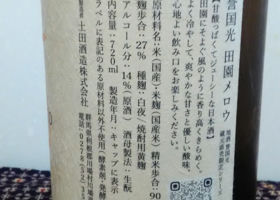 誉国光 田園メロウ
甘酸っぱくてジューシーな日本酒
田園にそよぐ風のように香り高くきらめく。
よく冷やして爽やかな甘さと優しい酸味、
心地よい飲み口をお楽しみください。
原材料名:米(国産)・米麹(国産米) 精米歩合:90
麹歩合:27% 種麹:白夜(焼酎用黄麹)
アルコール分:14%(原酒) 酒母製法:生酛
内容量:720ml 製造年月:キャップに表示
ラベルに表記のある原材料以外不使用(酵素剤、発酵
土田酒造株式会社
群馬県利根郡川場村川場
電話:0278